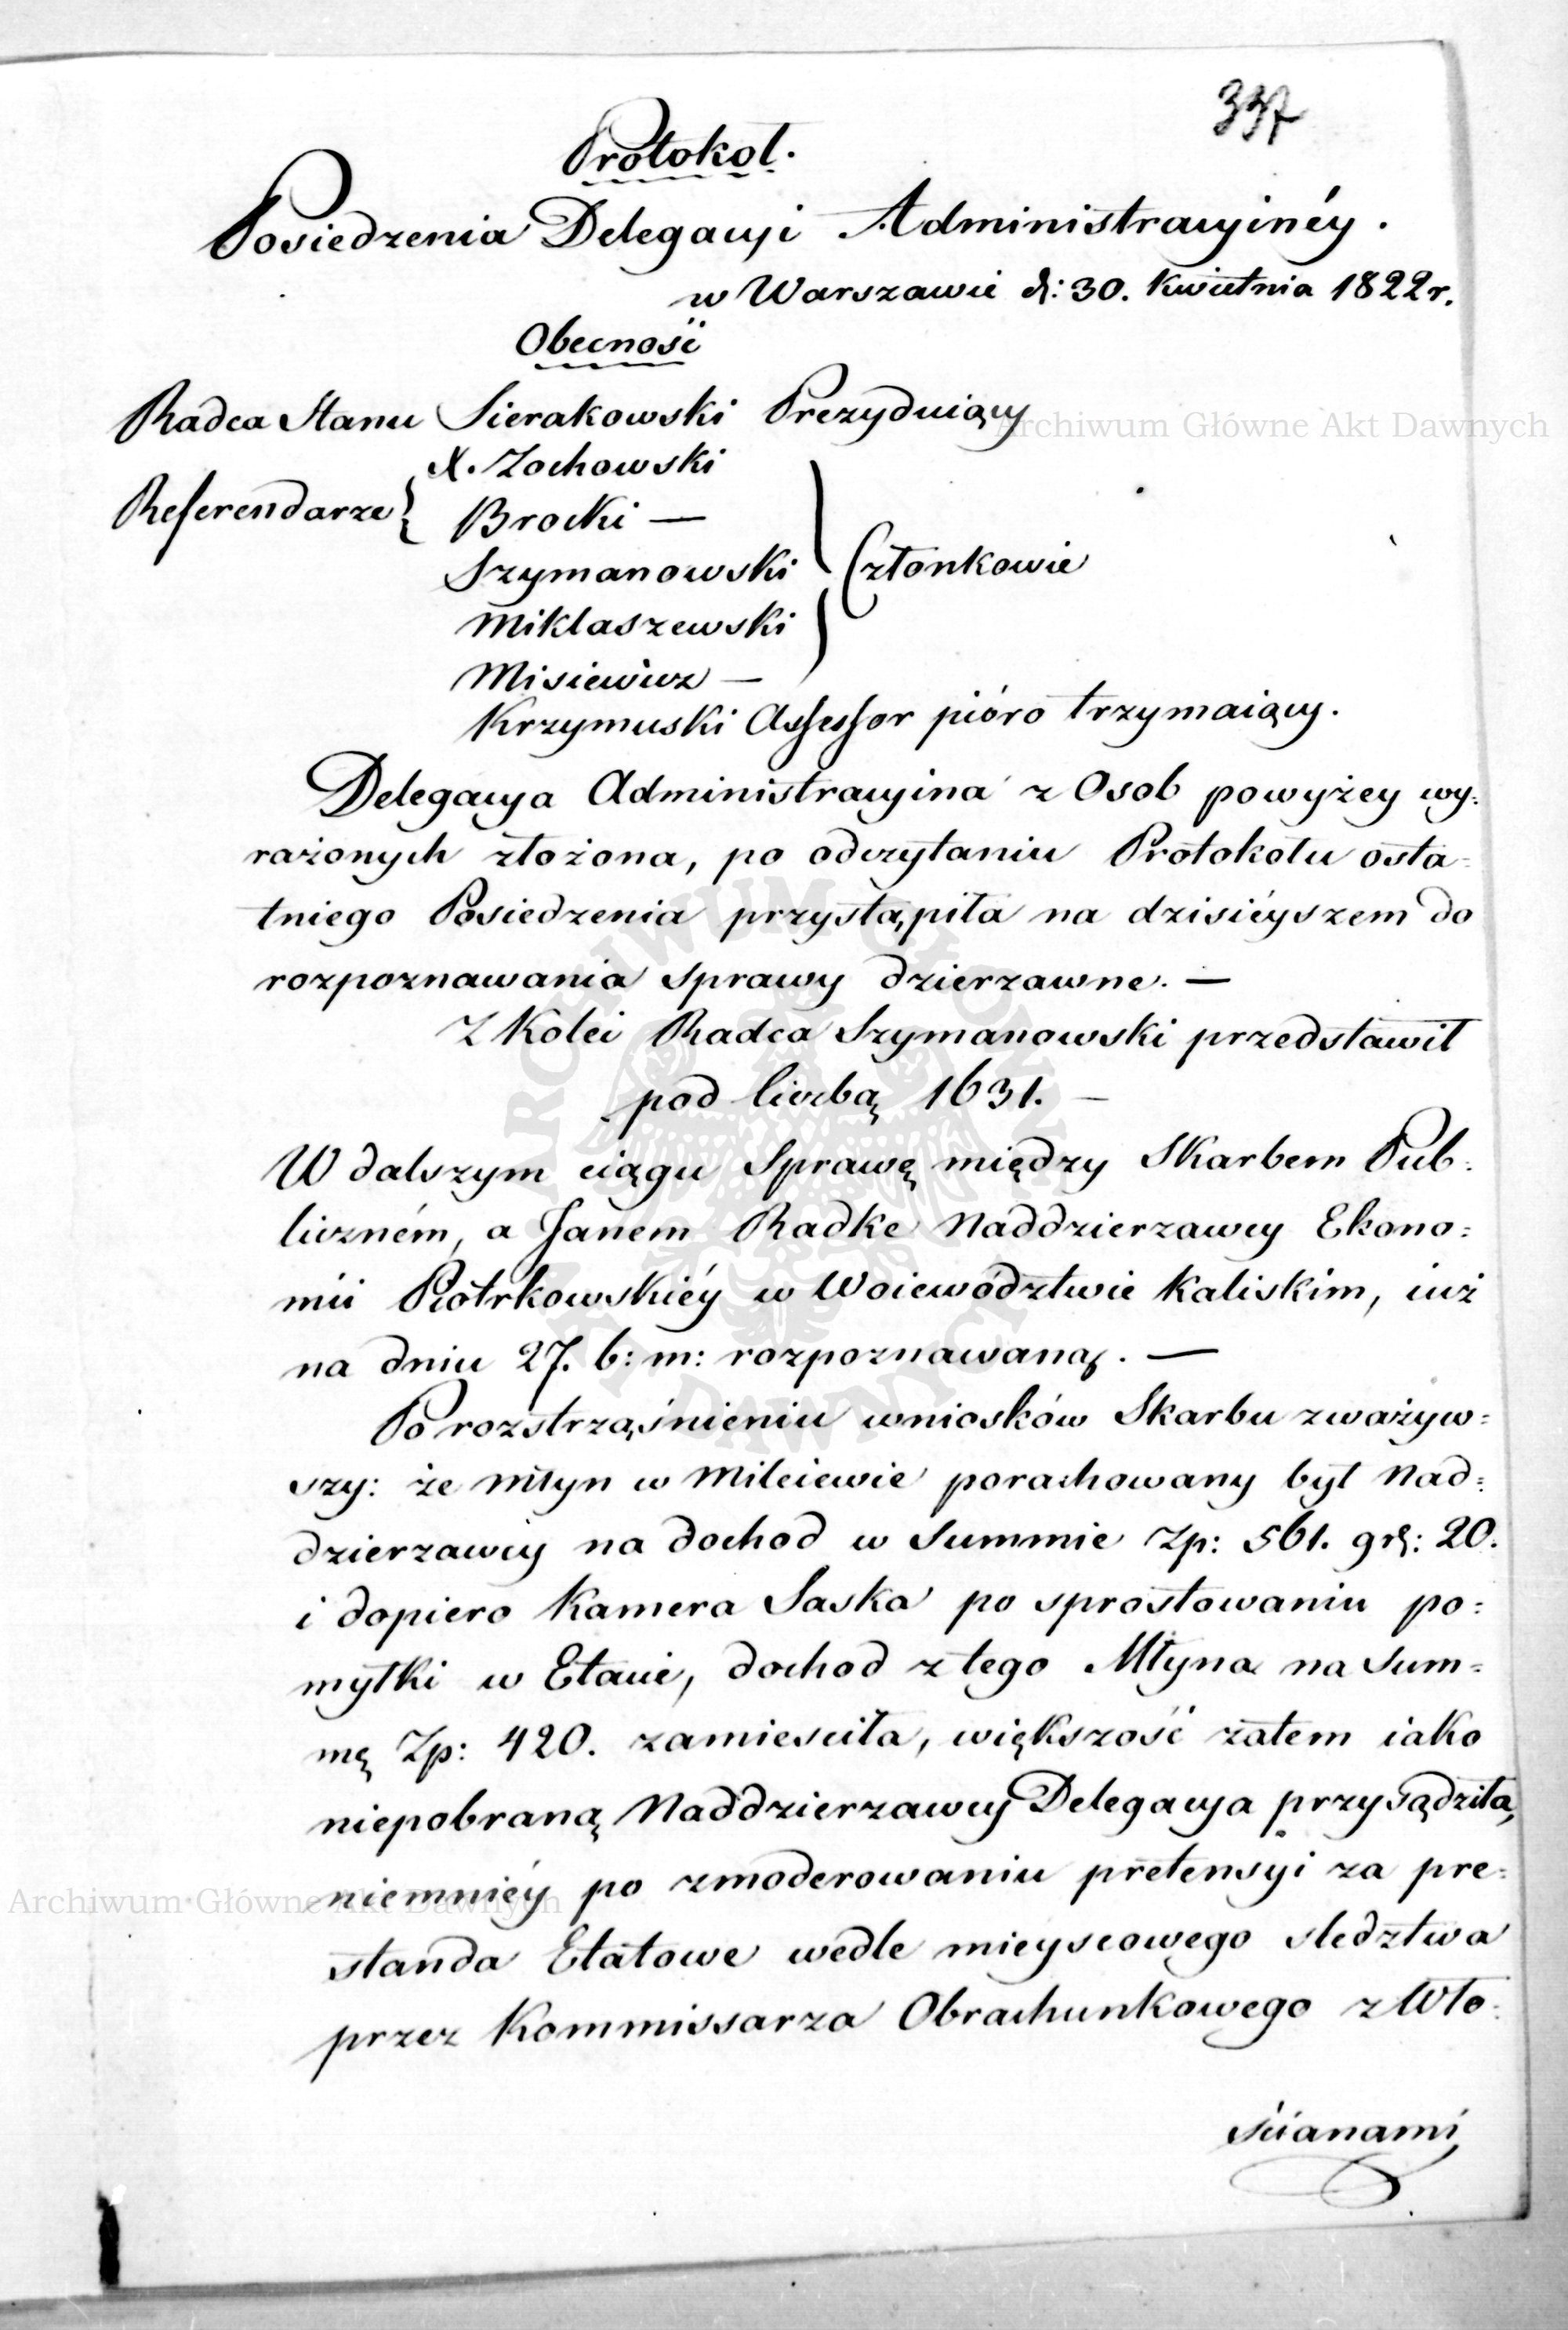 337
Protokoł.
Posiedzenia Delegacyi Administracyinéy.
w Warszawie d: 30. Kwietnia 1822 r.
Obecność
Radca Stanu Sierakowski Prezyduiący
X. Zochowski
Referendarze Brocki —
Szymanowski
Członkowie
Miklaszewski
Misiewicz —
Krzymuski Assessor pióro trzymaiący.
Delegacya Administracyina z Osob powyżey wy:
rażonych złożona, po odczytaniu Protokołu osta:
tniego Posiedzenia przystąpiła na dzisiéyszem do
rozpoznawania sprawy dzierzawne. —
Z Kolei Radca Szymanowski przedstawił
pod liczbą 1631. —
W dalszym ciągu Sprawę między Skarbem Pub:
liczném, a Janem Radke Naddzierzawcy Ekono:
mii Piotrkowskiéy w Woiewództwie Kaliskim, iuż
na dniu 27. b: m: rozpoznawaną. —
Po rozstrząśnieniu wniosków Skarbu zważyw:
szy: że Młyn w Mileiewie porachowany był Nad:
dzierzawcy na dochod w Summie Zp: 561. gr: 20.
i dopiero Kamera Saska po sprostowaniu po:
myłki w Etacie, dochod z tego Młyna na Sum:
mę Zp: 420. zamiesciła, większość zatem iako
niepobraną Naddzierzawcy Delegacya przysądziła,
niemniéy po zmoderowaniu pretensyi za pre:
standa Etatowe wedle mieyscowego sledztwa
przez Kommissarza Obrachunkowego z Wło:
ścianami
Archiwum Główne Akt Dawnych
Archiwum Główne Akt Dawnych
ARCHIWUM GŁÓWNE AKT DAWNYCH